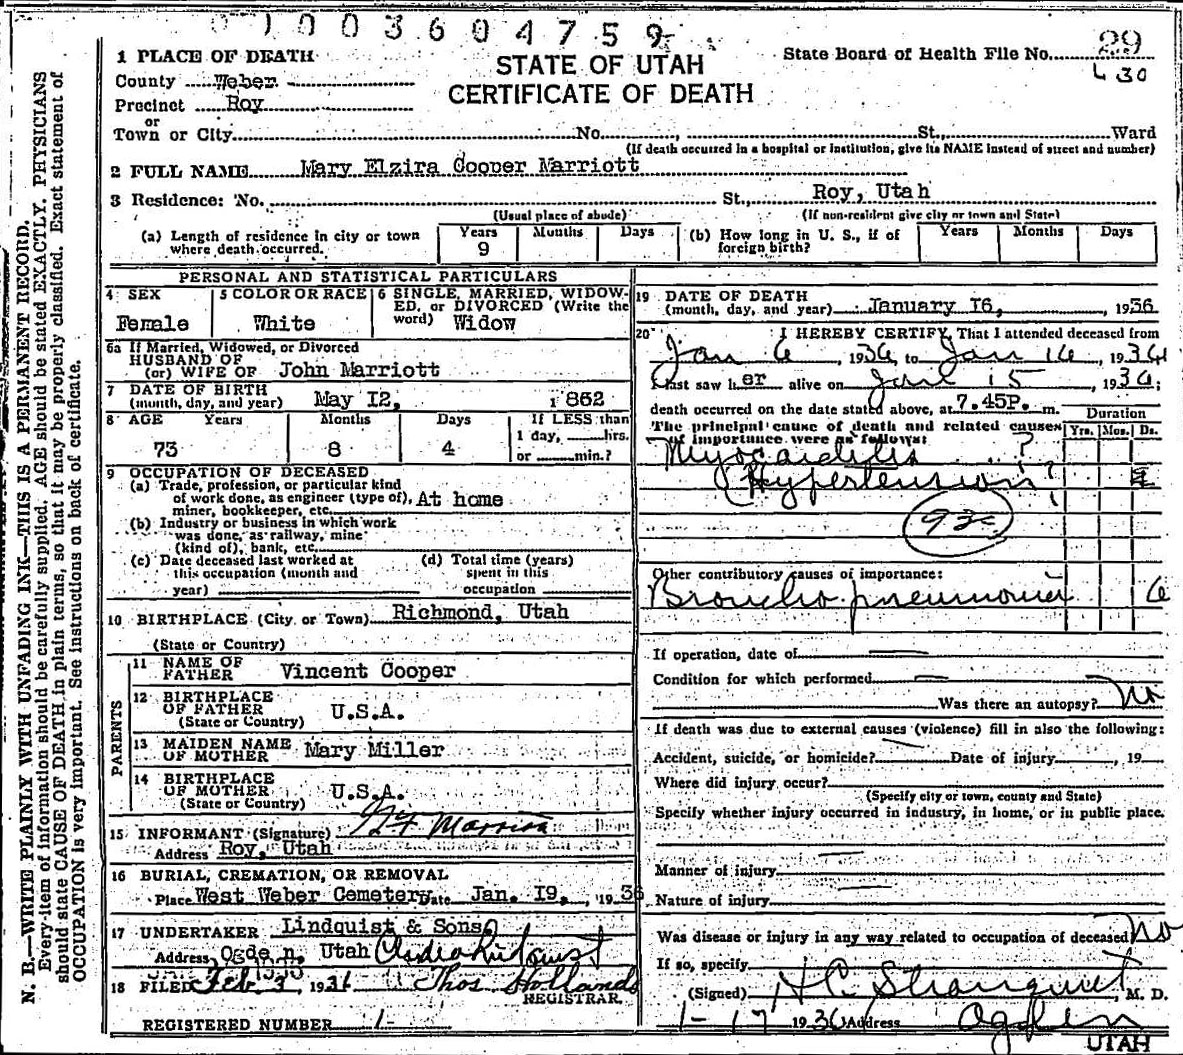 0 1 0 0 3 6 0 4 7 5 9
State Board of Health File No. 29
430
STATE OF UTAH
CERTIFICATE OF DEATH
1 PLACE OF DEATH
County Weber
Precinct Roy
or
Town or City No. , St., Ward
(If death occurred in a hospital or institution, give its NAME instead of street and number)
2 FULL NAME Mary Elzira Cooper Marriott
3 Residence: No. St., Roy, Utah
(Usual place of abode) (If non-resident give city or town and State)
(a) Length of residence in city or town where death occurred. Years 9 Months Days
(b) How long in U. S., if of foreign birth? Years Months Days
PERSONAL AND STATISTICAL PARTICULARS
4 SEX Female
5 COLOR OR RACE White
6 SINGLE, MARRIED, WIDOW-
ED, or DIVORCED (Write the
word) Widow
6a If Married, Widowed, or Divorced
HUSBAND OF
(or) WIFE OF John Marriott
7 DATE OF BIRTH
(month, day, and year) May I2, 1862
8 AGE Years 73 Months 8 Days 4
If LESS than
1 day, hrs.
or min.?
9 OCCUPATION OF DECEASED
(a) Trade, profession, or particular kind
of work done, as engineer (type of), At home
miner, bookkeeper, etc.
(b) Industry or business in which work
was done, as railway, mine
(kind of), bank, etc.
(c) Date deceased last worked at
this occupation (month and
year)
(d) Total time (years)
spent in this
occupation
10 BIRTHPLACE (City or Town) Richmond, Utah
(State or Country)
PARENTS
11 NAME OF
FATHER Vincent Cooper
12 BIRTHPLACE
OF FATHER U.S.A.
(State or Country)
13 MAIDEN NAME
OF MOTHER Mary Miller
14 BIRTHPLACE
OF MOTHER U.S.A.
(State or Country)
15 INFORMANT (Signature) Marriott
Address Roy, Utah
16 BURIAL, CREMATION, OR REMOVAL
Place West Weber Cemetery Date Jan. I9, , 1936
17 UNDERTAKER Lindquist & Sons
Address Ogden, Utah
18 FILED Feb 3, 1936 Thos Holland
REGISTRAR.
REGISTERED NUMBER 1
19 DATE OF DEATH
(month, day, and year) January I6, , 1936
20 I HEREBY CERTIFY, That I attended deceased from
Jan 6, 1936, to Jan 16, 1936
I last saw her alive on Jan 15, 1936;
death occurred on the date stated above, at 7.45P. m.
The principal cause of death and related causes
of importance were as follows:
Duration
Yrs. Mos. Ds.
Myocarditis ?
(Hypertension ?
93c
Other contributory causes of importance:
Broncho pneumonia 6
If operation, date of
Condition for which performed
Was there an autopsy? No
If death was due to external causes (violence) fill in also the following:
Accident, suicide, or homicide? Date of injury , 19
Where did injury occur?
(Specify city or town, county and State)
Specify whether injury occurred in industry, in home, or in public place.
Manner of injury
Nature of injury
Was disease or injury in any way related to occupation of deceased No
If so, specify
(Signed) H C Stranquist, M. D.
1-17 1936 Address Ogden
UTAH
N. B.—WRITE PLAINLY WITH UNFADING INK—THIS IS A PERMANENT RECORD.
Every item of information should be carefully supplied. AGE should be stated EXACTLY. PHYSICIANS
should state CAUSE OF DEATH in plain terms, so that it may be properly classified. Exact statement of
OCCUPATION is very important. See instructions on back of certificate.